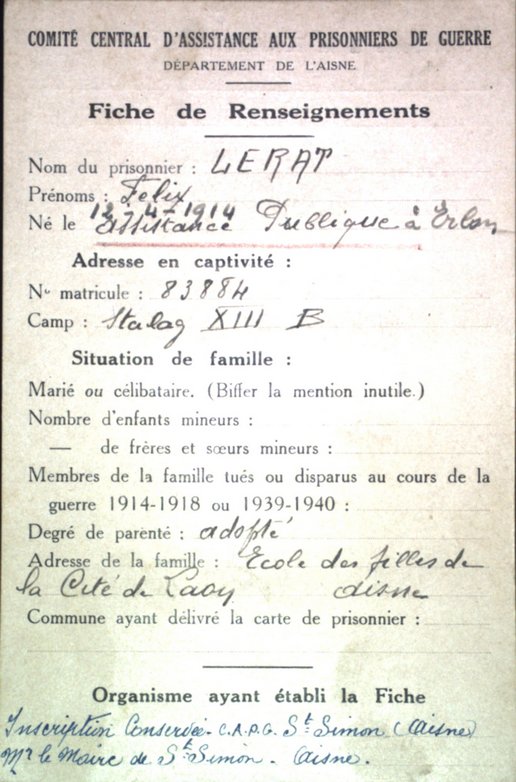 COMITÉ CENTRAL D'ASSISTANCE AUX PRISONNIERS DE GUERRE
DÉPARTEMENT DE L'AISNE
Fiche de Renseignements
Nom du prisonnier : LERAT
Prénoms : Felix
12-4-1914
Né le assistance Publique à Erlon
Adresse en captivité :
No matricule : 83884
Camp : Stalag XIII B
Situation de famille :
Marié ou célibataire. (Biffer la mention inutile.)
Nombre d'enfants mineurs :
— de frères et sœurs mineurs :
Membres de la famille tués ou disparus au cours de la
guerre 1914-1918 ou 1939-1940 :
Degré de parenté : adopté
Adresse de la famille : Ecole des filles de
la Cité de Laon aisne
Commune ayant délivré la carte de prisonnier :
Organisme ayant établi la Fiche
Inscription Conservée. C.A.P.G. St Simon (Aisne)
Mr le Maire de St Simon - Aisne.